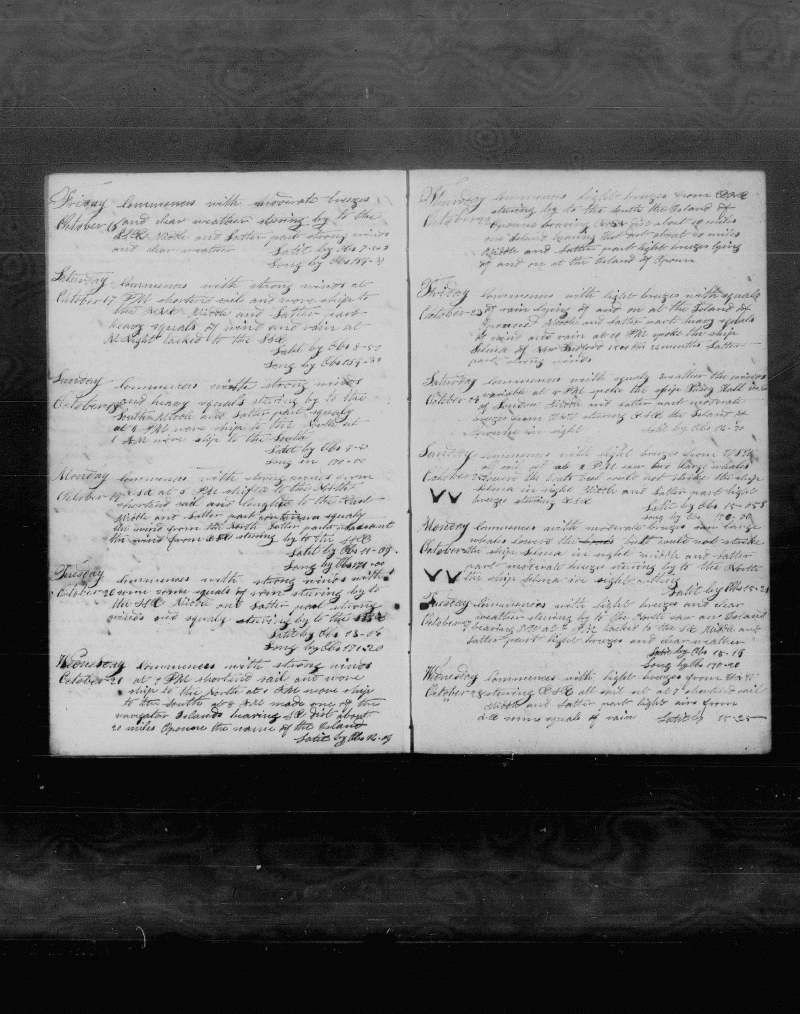 Friday commences with moderate breezes
October 16 and clear weather stering by to the
SSE Middle and Latter part strong winds
and clear weather Latit by Obs 7-
Long by Obs 159-
Saturday commences with strong winds at
October 17 PM shortend sail and wore ship to
the Middle and Latter part
heavy squals of wind and rain at
M Night tacked to the SSE
Latit by Obs 8-50
Long by Obs 159-30
Sunday commences with strong winds
October 18 and heavy squals stering by to the
South Middle and Latter part squaly
at 8 PM wore ship to the North at
1 AM wore ship to the South
Latit by Obs 9-
Long in 170-00
Monday commences with strong winds from
October 19 ESE at PM ship to the North
shortend sail and to the East
Middle and Latter part squaly
the wind from the North Latter part
the wind from ESE stering by to the SSE
Latit by Obs 11-09
Long by Obs 171-00
Tuesday commences with strong winds with
October 20 some squals of rain stering by to
the SSE Middle and Latter part strong
winds and squaly stering by to the
Latit by Obs 13-06
Long by Obs 171-20
Wednesday commences with strong winds
October 21 at 7 PM shortend sail and wore
ship to the North at 1 AM wore ship
to the South at 8 AM made one of the
navigator Islands bearing SE dist about
20 miles the name of the Island
Latit by Obs 14-
Thursday commences light breezes from
October 22 stering by to the South the Island of
bearing dist about 10 miles
one Island bearing about 20 miles
Middle and Latter part light breezes lying
of and on at the Island of
Friday commences with light breezes with squals
October 23 of rain lying of and on at the Island of
Middle and Latter part heavy squals
of wind and rain at 10 PM spoke the ship
Selma of New Bedford months Latter
part strong winds
Saturday commences with squaly weather the winds
October 24 variable at PM spoke the ship Hall
of London Middle and Latter part moderate
breezes from stering ESE the Island
in sight Latit by Obs 14-20
Sunday commences with light breezes from
October 25 all sail at at 2 PM saw two large whales
lowerd the boats but could not strike the ship
Selma in sight Middle and Latter part light
breezes stering ESE Latit by Obs 15-05
Long by Obs 170-00
Monday commences with moderate breezes saw large
October 26 whales lowerd the boats but could not strike
the ship Selma in sight Middle and Latter
part moderate breezes stering by to the North
the ship Selma in sight
Latit by Obs 15-21
Tuesday commences with light breezes and clear
October 27 weather stering by to the North saw an Island
bearing NW at PM tacked to the SE Middle and
Latter part light breezes and clear weather
Latit by Obs 15-15
Long by Obs 170-20
Wednesday commences with light breezes from
October 28 stering ESE all sail set at 7 shortend sail
Middle and Latter part light airs from
some squals of rain Latit by 15-25